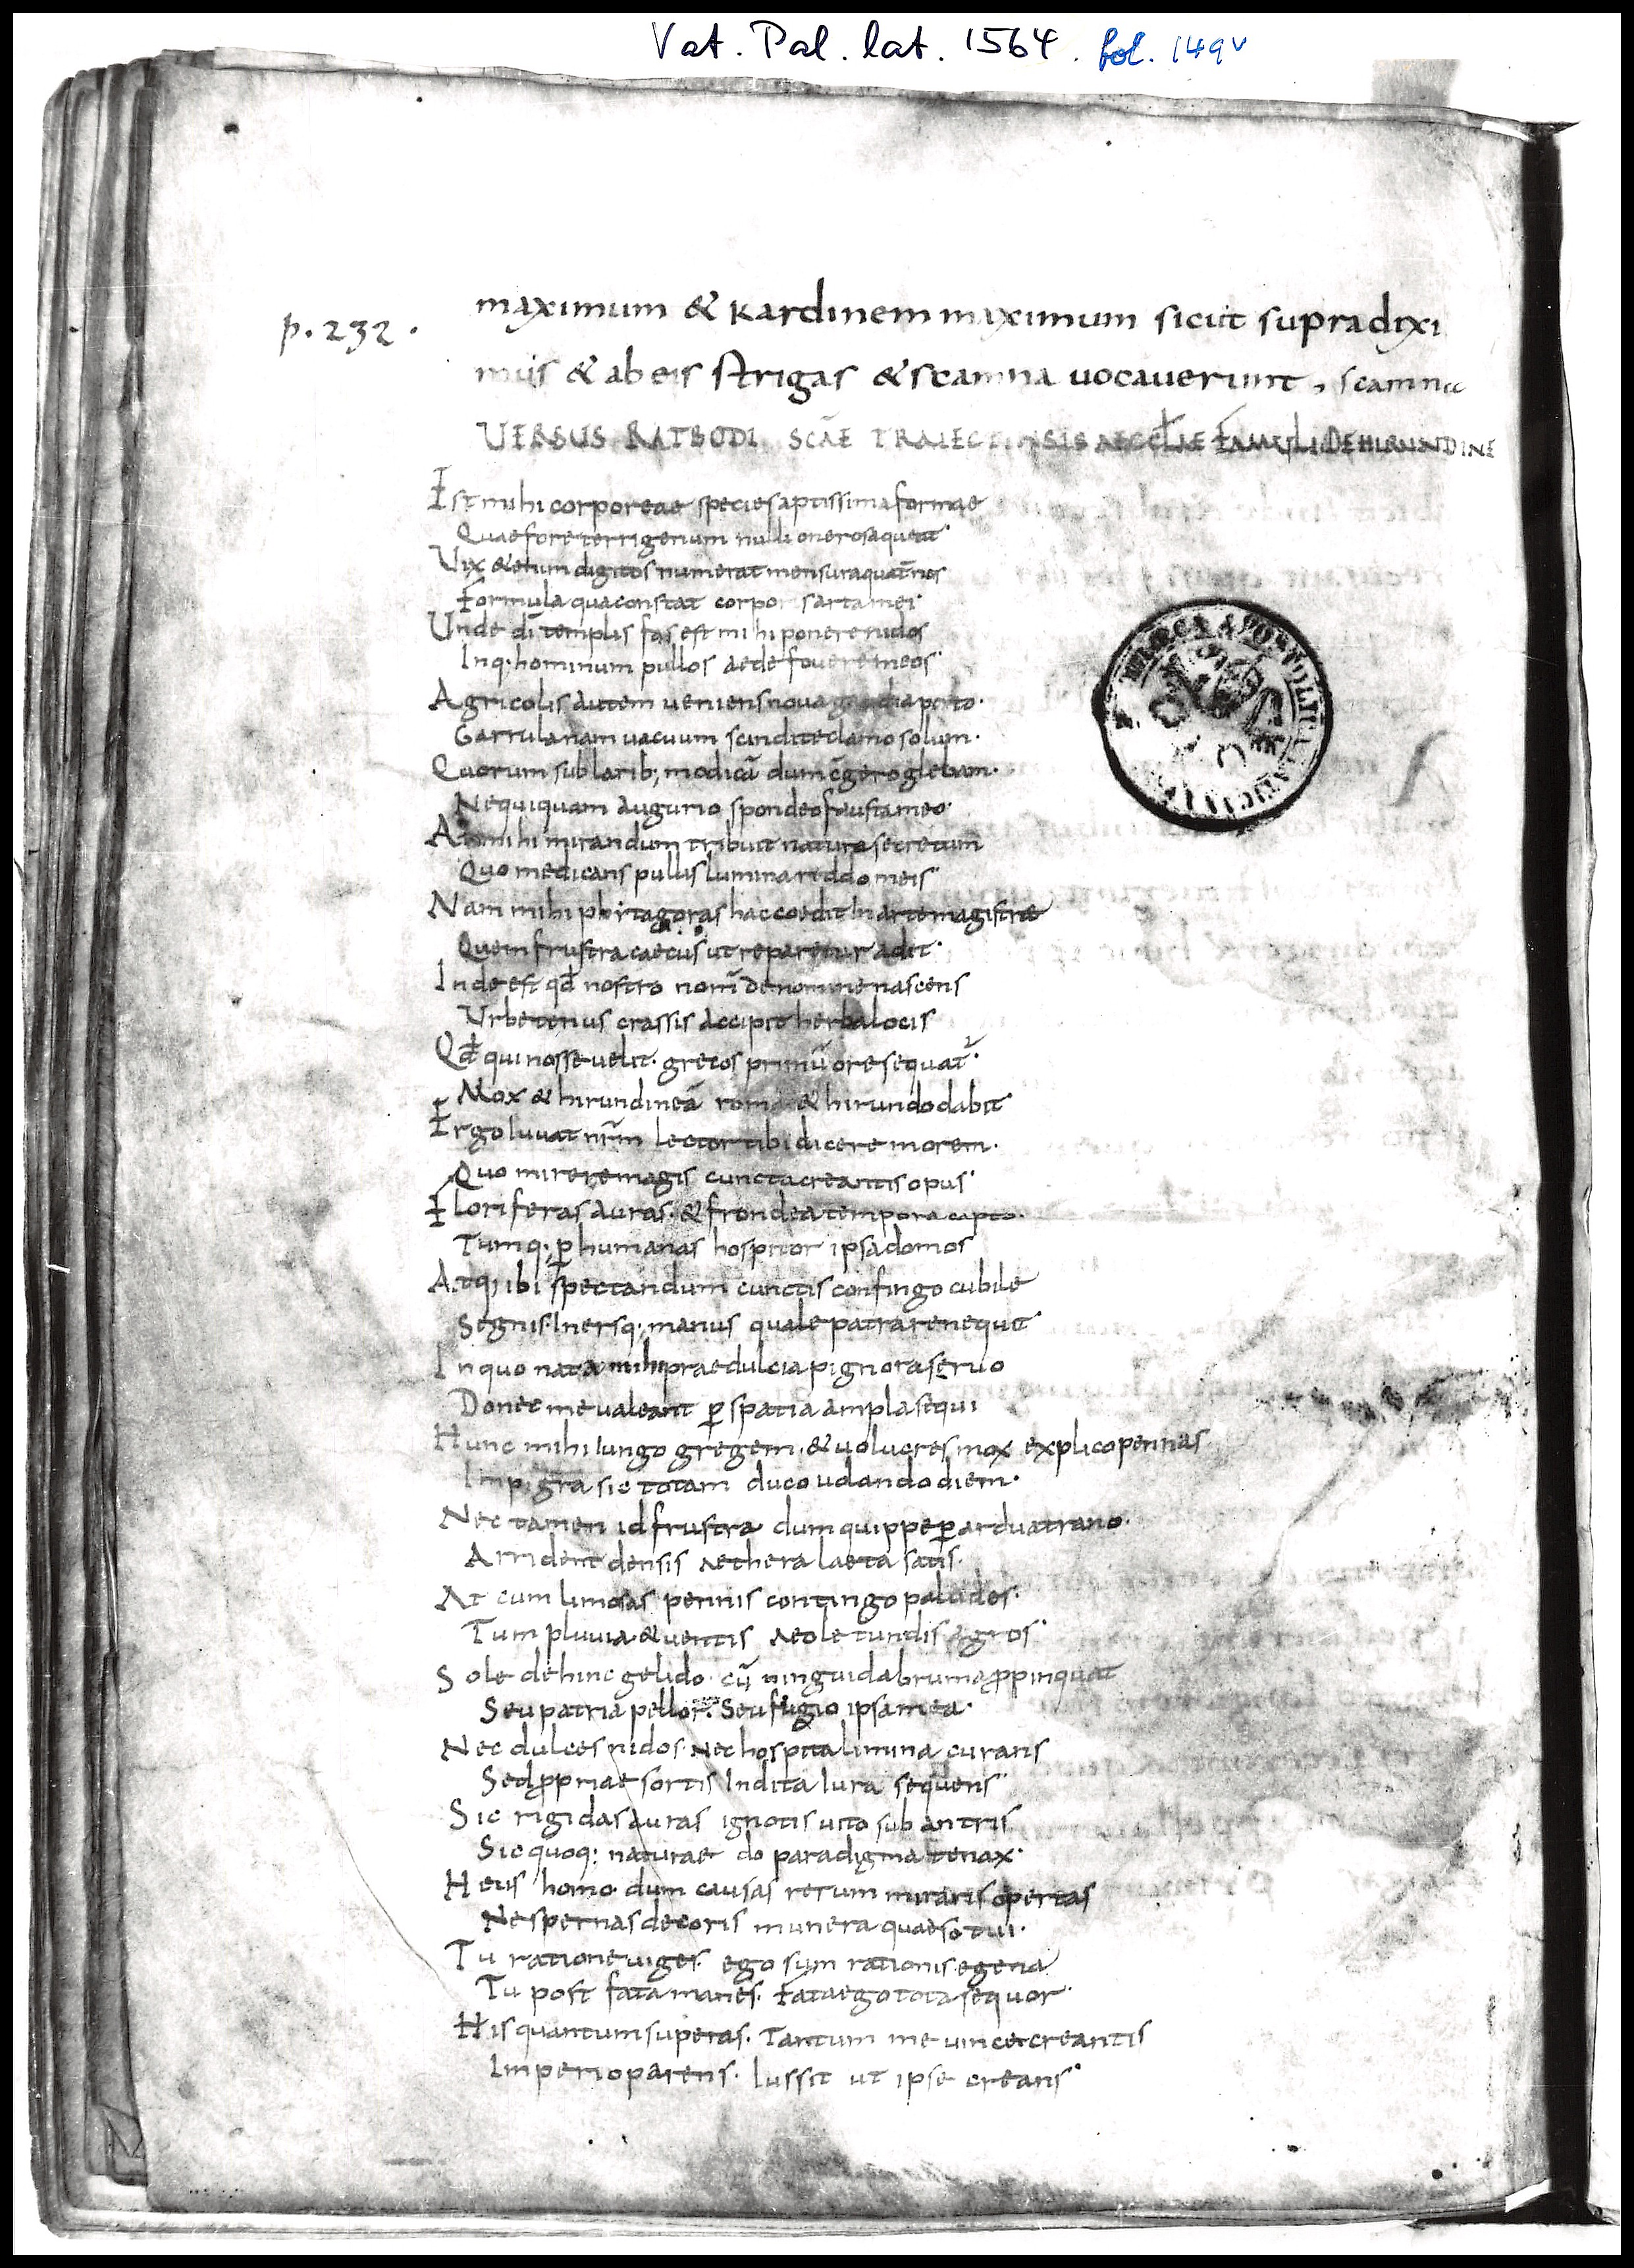 Vat. Pal. lat. 1564. fol. 149v
p. 232.
maximum & Kardinem maximum sicut supra dixi
mus & ab eis strigas & scamna uocauerunt, scamna
VERSUS RATBODI SCĀE TRAIECTENSIS AECCLĪAE FAMULI DE HIRUNDINE
Est mihi corporeae species aptissima formae
Quae fore terrigenum nulli onerosa queat
Vix & enim digitos numerat mensura quat̄nos
Formula qua constat corporis arta mei
Unde dī templis fas est mihi ponere nidos
Inq; hominum pullos aede fouere meos
Agricolis autem ueniens noua gaudia porto.
Garrula nam uacuum scindite clamo solum.
Quorum sub larib; modicā dum ēgero glebam.
Nequiquam augurio spondeo fausta meo.
Ars mihi mirandum tribuit natura secretum
Quo medicans pullis lumina reddo meis
Nam mihi phitagoras hac coedit In arte magistrae
Quem frustra caecus ut reparetur adit.
Inde est qđ nostro nom̄ de nomine nascens
Urbe tenus crassis accipit herba locis
Qđ qui nosse uelit. grecos primū ore sequat̄.
Mox & hirundineā roma & hirundo dabit
Ergo Iuuat nr̄m lector tibi dicere morem.
Quo mirere magis cuncta creantis opus
Floriferas auras. & frondea tempora capto.
Tumq; p̱ humanas hospitor ipsa domos
Atq; ibi spectandum cunctis confingo cubile
Segnis Inersq; manus quale patrare nequit
In quo nata mihi praedulcia pignora seruo
Donec me ualeant p̱ spatia ampla sequi
Hunc mihi Iungo gregem. & uolucres mox explico pennas
Impigra sic totam duco uolando diem.
Nec tamen id frustra dum quippe p̱ ardua trano.
Arrident densis aethera laeta satis.
At cum limosas pennis contingo paludes.
Tum pluuia & uentis aeole tundis agros
Sole dehinc gelido. cū ninguida bruma ꝓpinquat
Seu patria pellor. Seu fugio ipsa mea.
Nec dulces nidos. nec hospita limina curans
Sed ꝓpriae sortis Indita Iura sequens
Sic rigidas auras ignotis uito sub antris
Sic quoq; naturae do paradigma tenax.
Heus homo. dum causas rerum miraris opertas
Ne spernas decoris munera quaeso tui.
Tu ratione uiges. ego sum rationis egena
Tu post fata manes. Fata ego tota sequor.
His quantum superas. Tantum me uincet creantis
Imperio parens. Iussit ut ipse creans